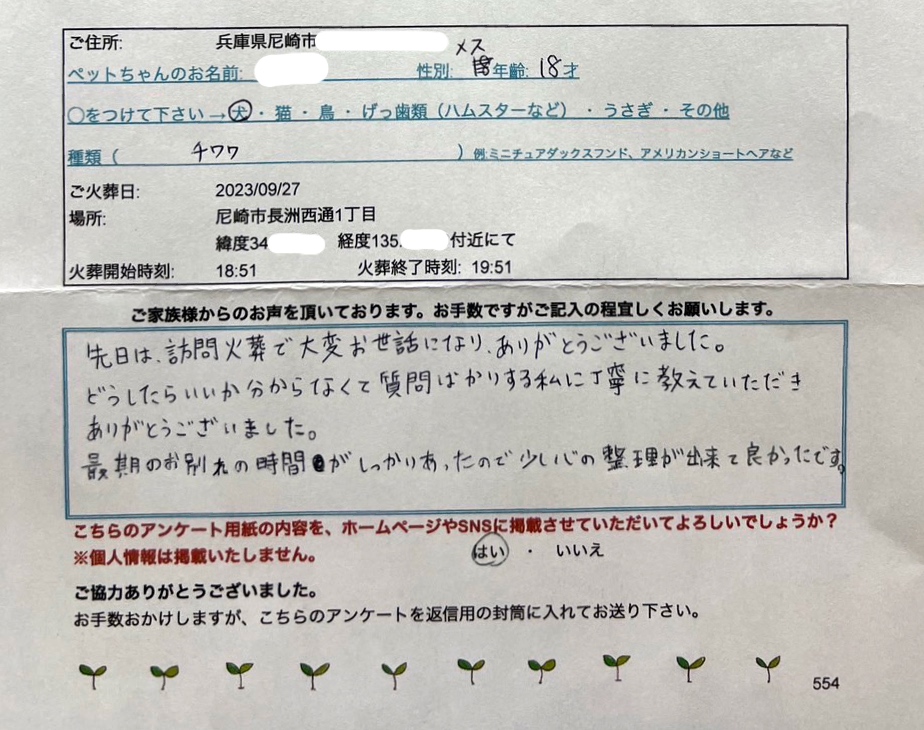 ご住所: 兵庫県尼崎市
メス
ペットちゃんのお名前: 性別: 年齢: 18才
○をつけて下さい→犬・猫・鳥・げっ歯類（ハムスターなど）・うさぎ・その他
種類（ チワワ ）例:ミニチュアダックスフンド、アメリカンショートヘアなど
ご火葬日: 2023/09/27
場所: 尼崎市長洲西通1丁目
緯度34 経度135. 付近にて
火葬開始時刻: 18:51 火葬終了時刻: 19:51
ご家族様からのお声を頂いております。お手数ですがご記入の程宜しくお願いします。
先日は、訪問火葬で大変お世話になり、ありがとうございました。
どうしたらいいか分からなくて質問ばかりする私に丁寧に教えていただき
ありがとうございました。
最期のお別れの時間がしっかりあったので少し心の整理が出来て良かったです。
こちらのアンケート用紙の内容を、ホームページやSNSに掲載させていただいてよろしいでしょうか？
※個人情報は掲載いたしません。 はい ・ いいえ
ご協力ありがとうございました。
お手数おかけしますが、こちらのアンケートを返信用の封筒に入れてお送り下さい。
554